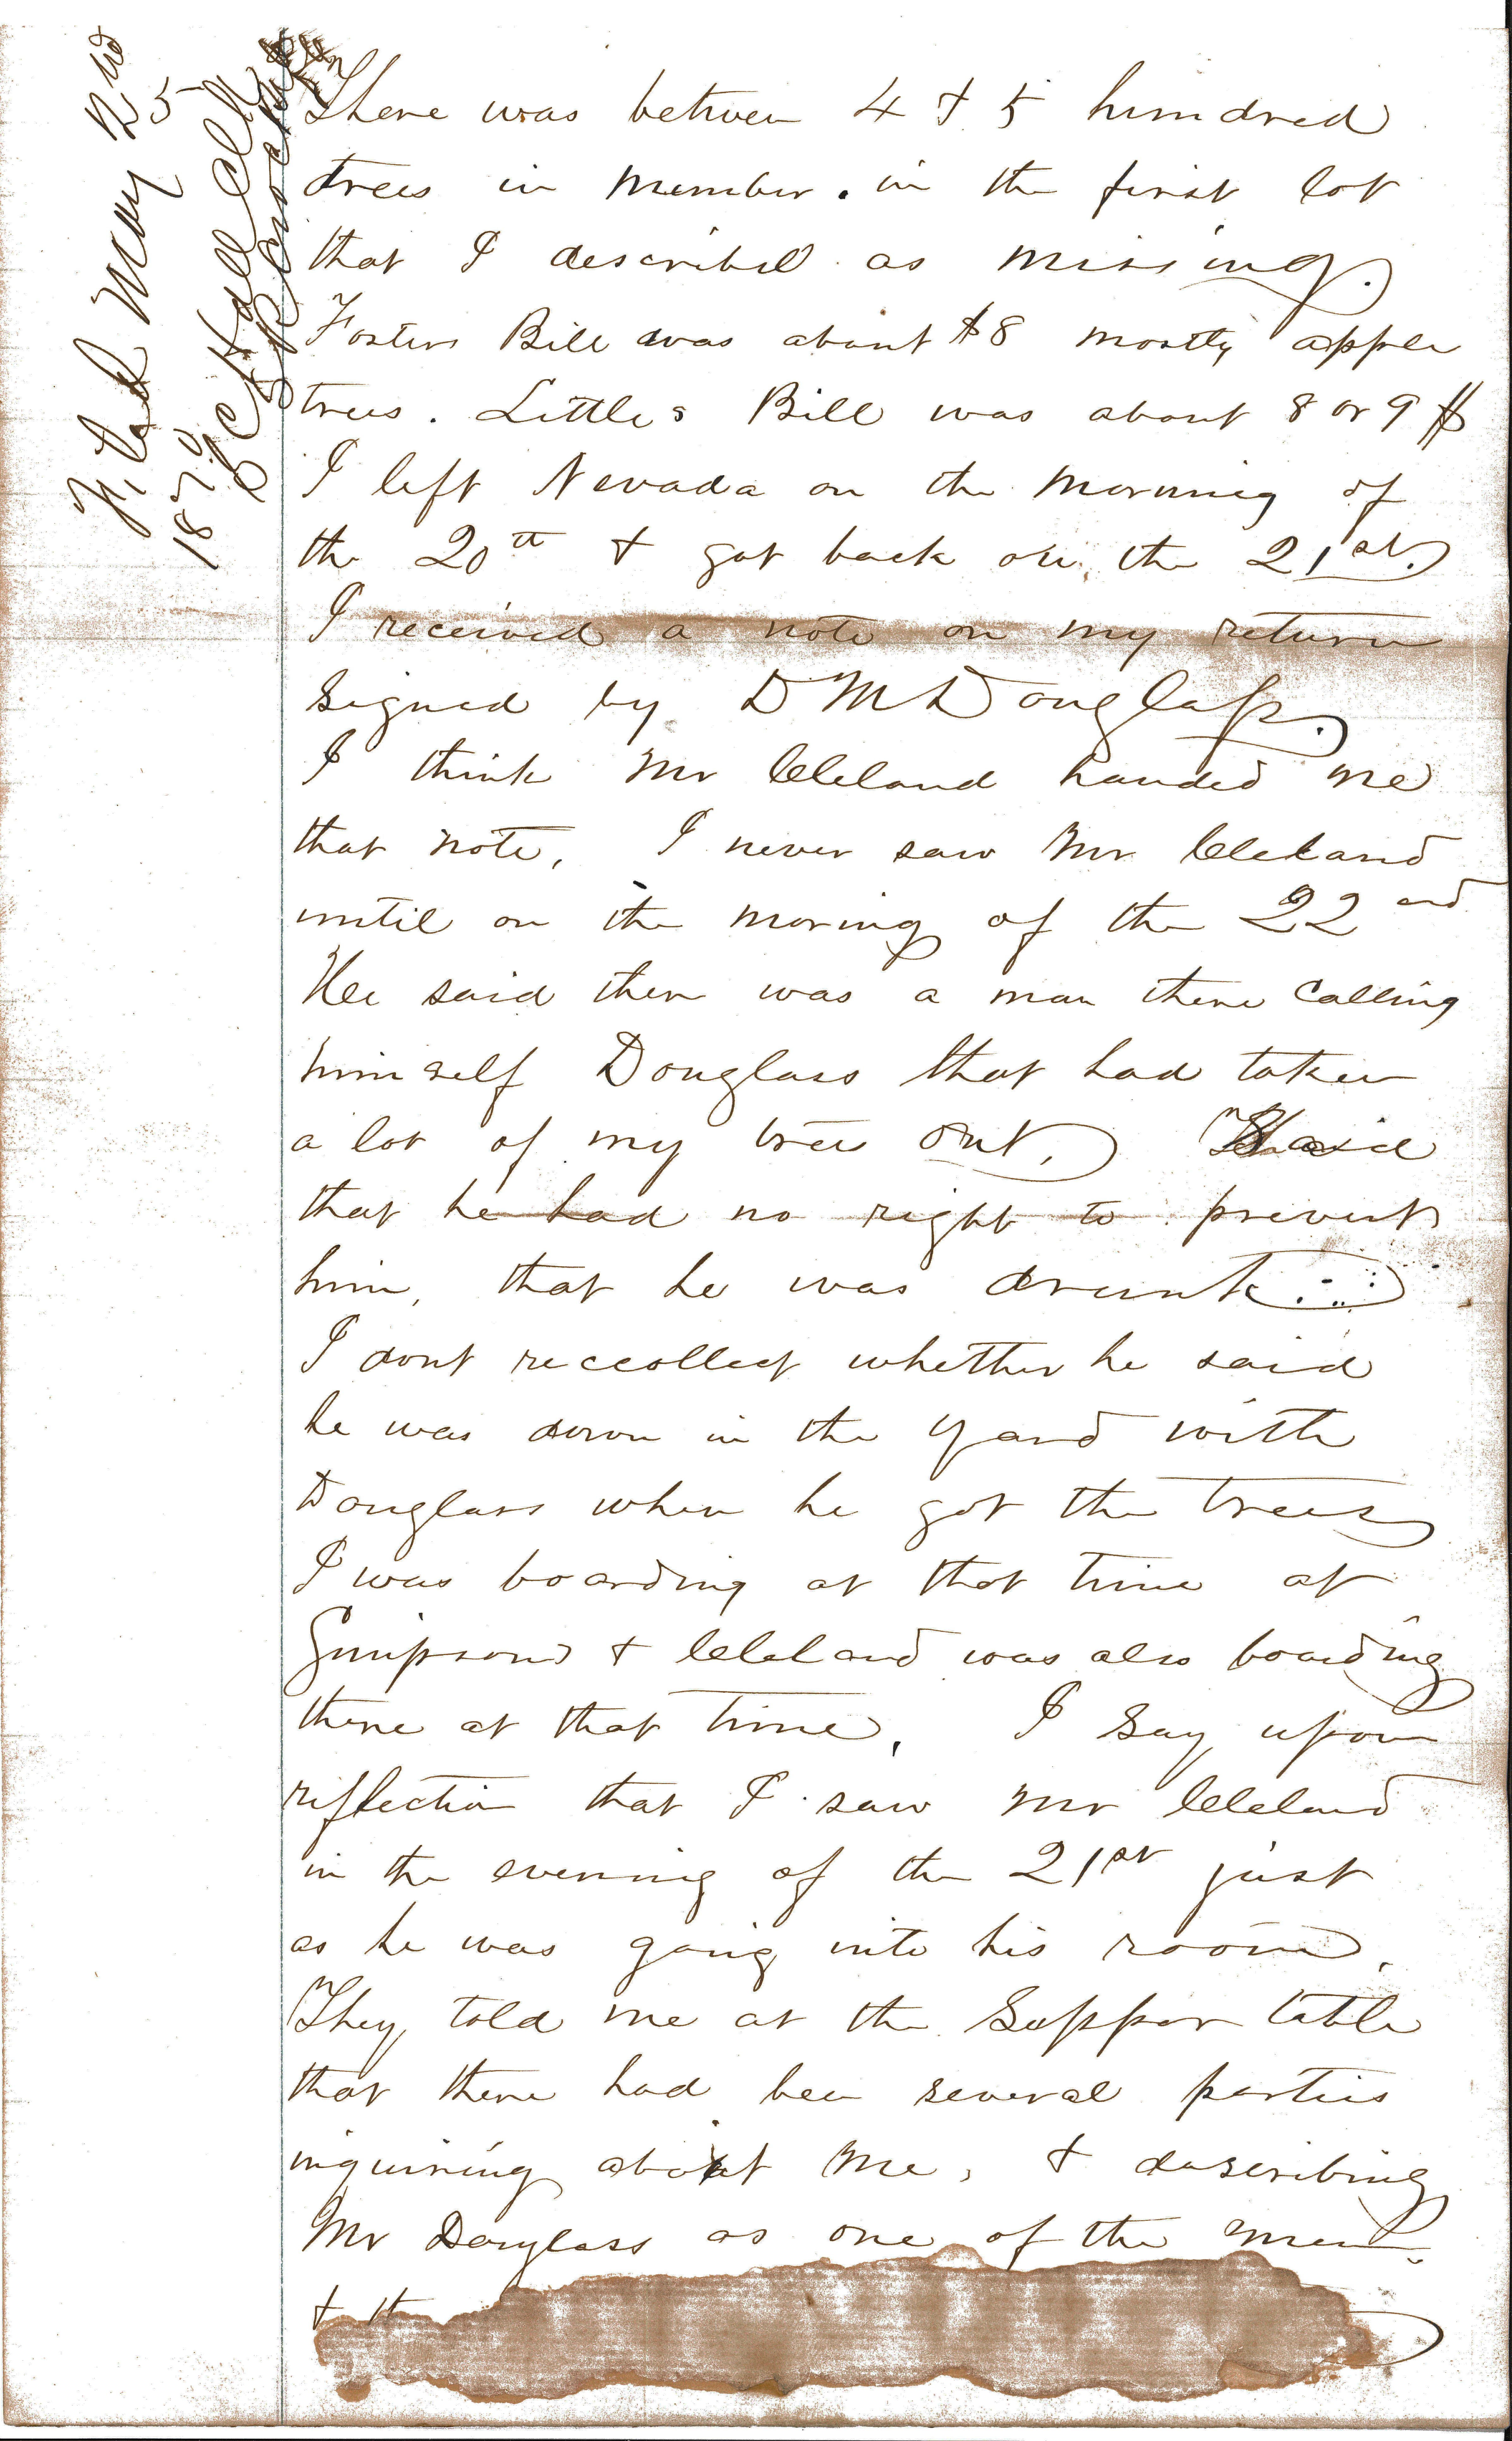 Filed May 25
1870
S C Hall Clk
There was between 4 & 5 hundred
trees in number. in the first lot
that I described as missing.
Fosters Bill was about $8 mostly apple
trees. Littles Bill was about 8 or 9 $
I left Nevada on the morning of
the 20th & got back on the 21st.
I received a note on my return
signed by D M Douglass.
I think Mr Cleland handed me
that note, I never saw Mr Cleland
until on the moring of the 22nd
He said ther was a man there calling
himself Douglass that had taken
a lot of my trees out, Said
that he had no right to prevent
him, that he was drunk.
I dont reccollect whether he said
he was down in the yard with
Douglass when he got the trees
I was boarding at that time at
Simpsons & Cleland was also boarding
there at that time, I say upon
riflection that I saw Mr Cleland
in the evening of the 21st just
as he was going into his room,
They told me at the Supper table
that there had been several parties
inquiring about me, & describing
Mr Douglass as one of the men.
&